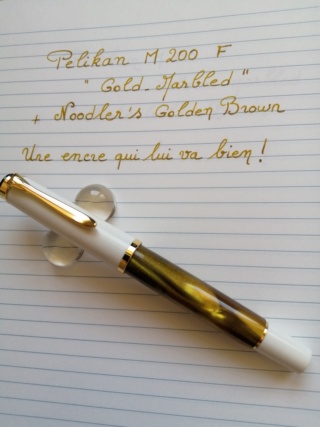 Pelikan M 200 F
"Gold-Marbled"
+ Noodler's Golden Brown
Une encre qui lui va bien !